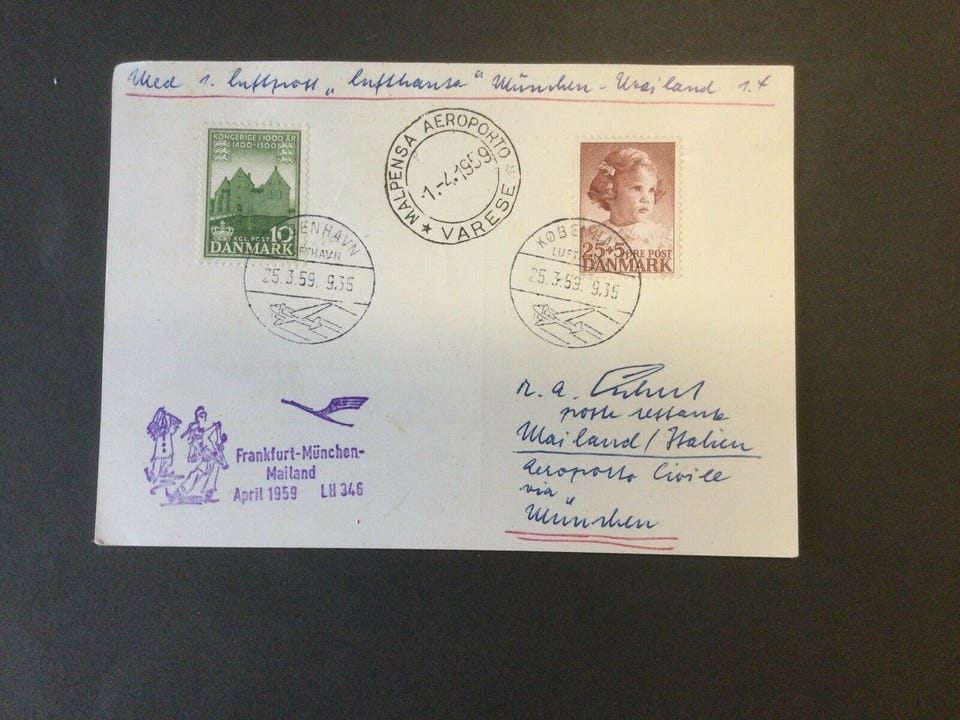 Med 1. luftpost „Lufthansa“ München - Mailand 1.4
KONGERIGE I 1000 ÅR
1400-1500
KGL. POST 10
DANMARK
MALPENSA AEROPORTO
1.-4.1959
VARESE
25+5 ØRE POST
DANMARK
KØBENHAVN
LUFTHAVN
25.3.59. 9.35
KØBENHAVN
LUFTHAVN
25.3.59. 9.35
Frankfurt-München-
Mailand
April 1959 LH 346
r. a.
poste restante
Mailand/Italien
Aeroporto Civile
via
München